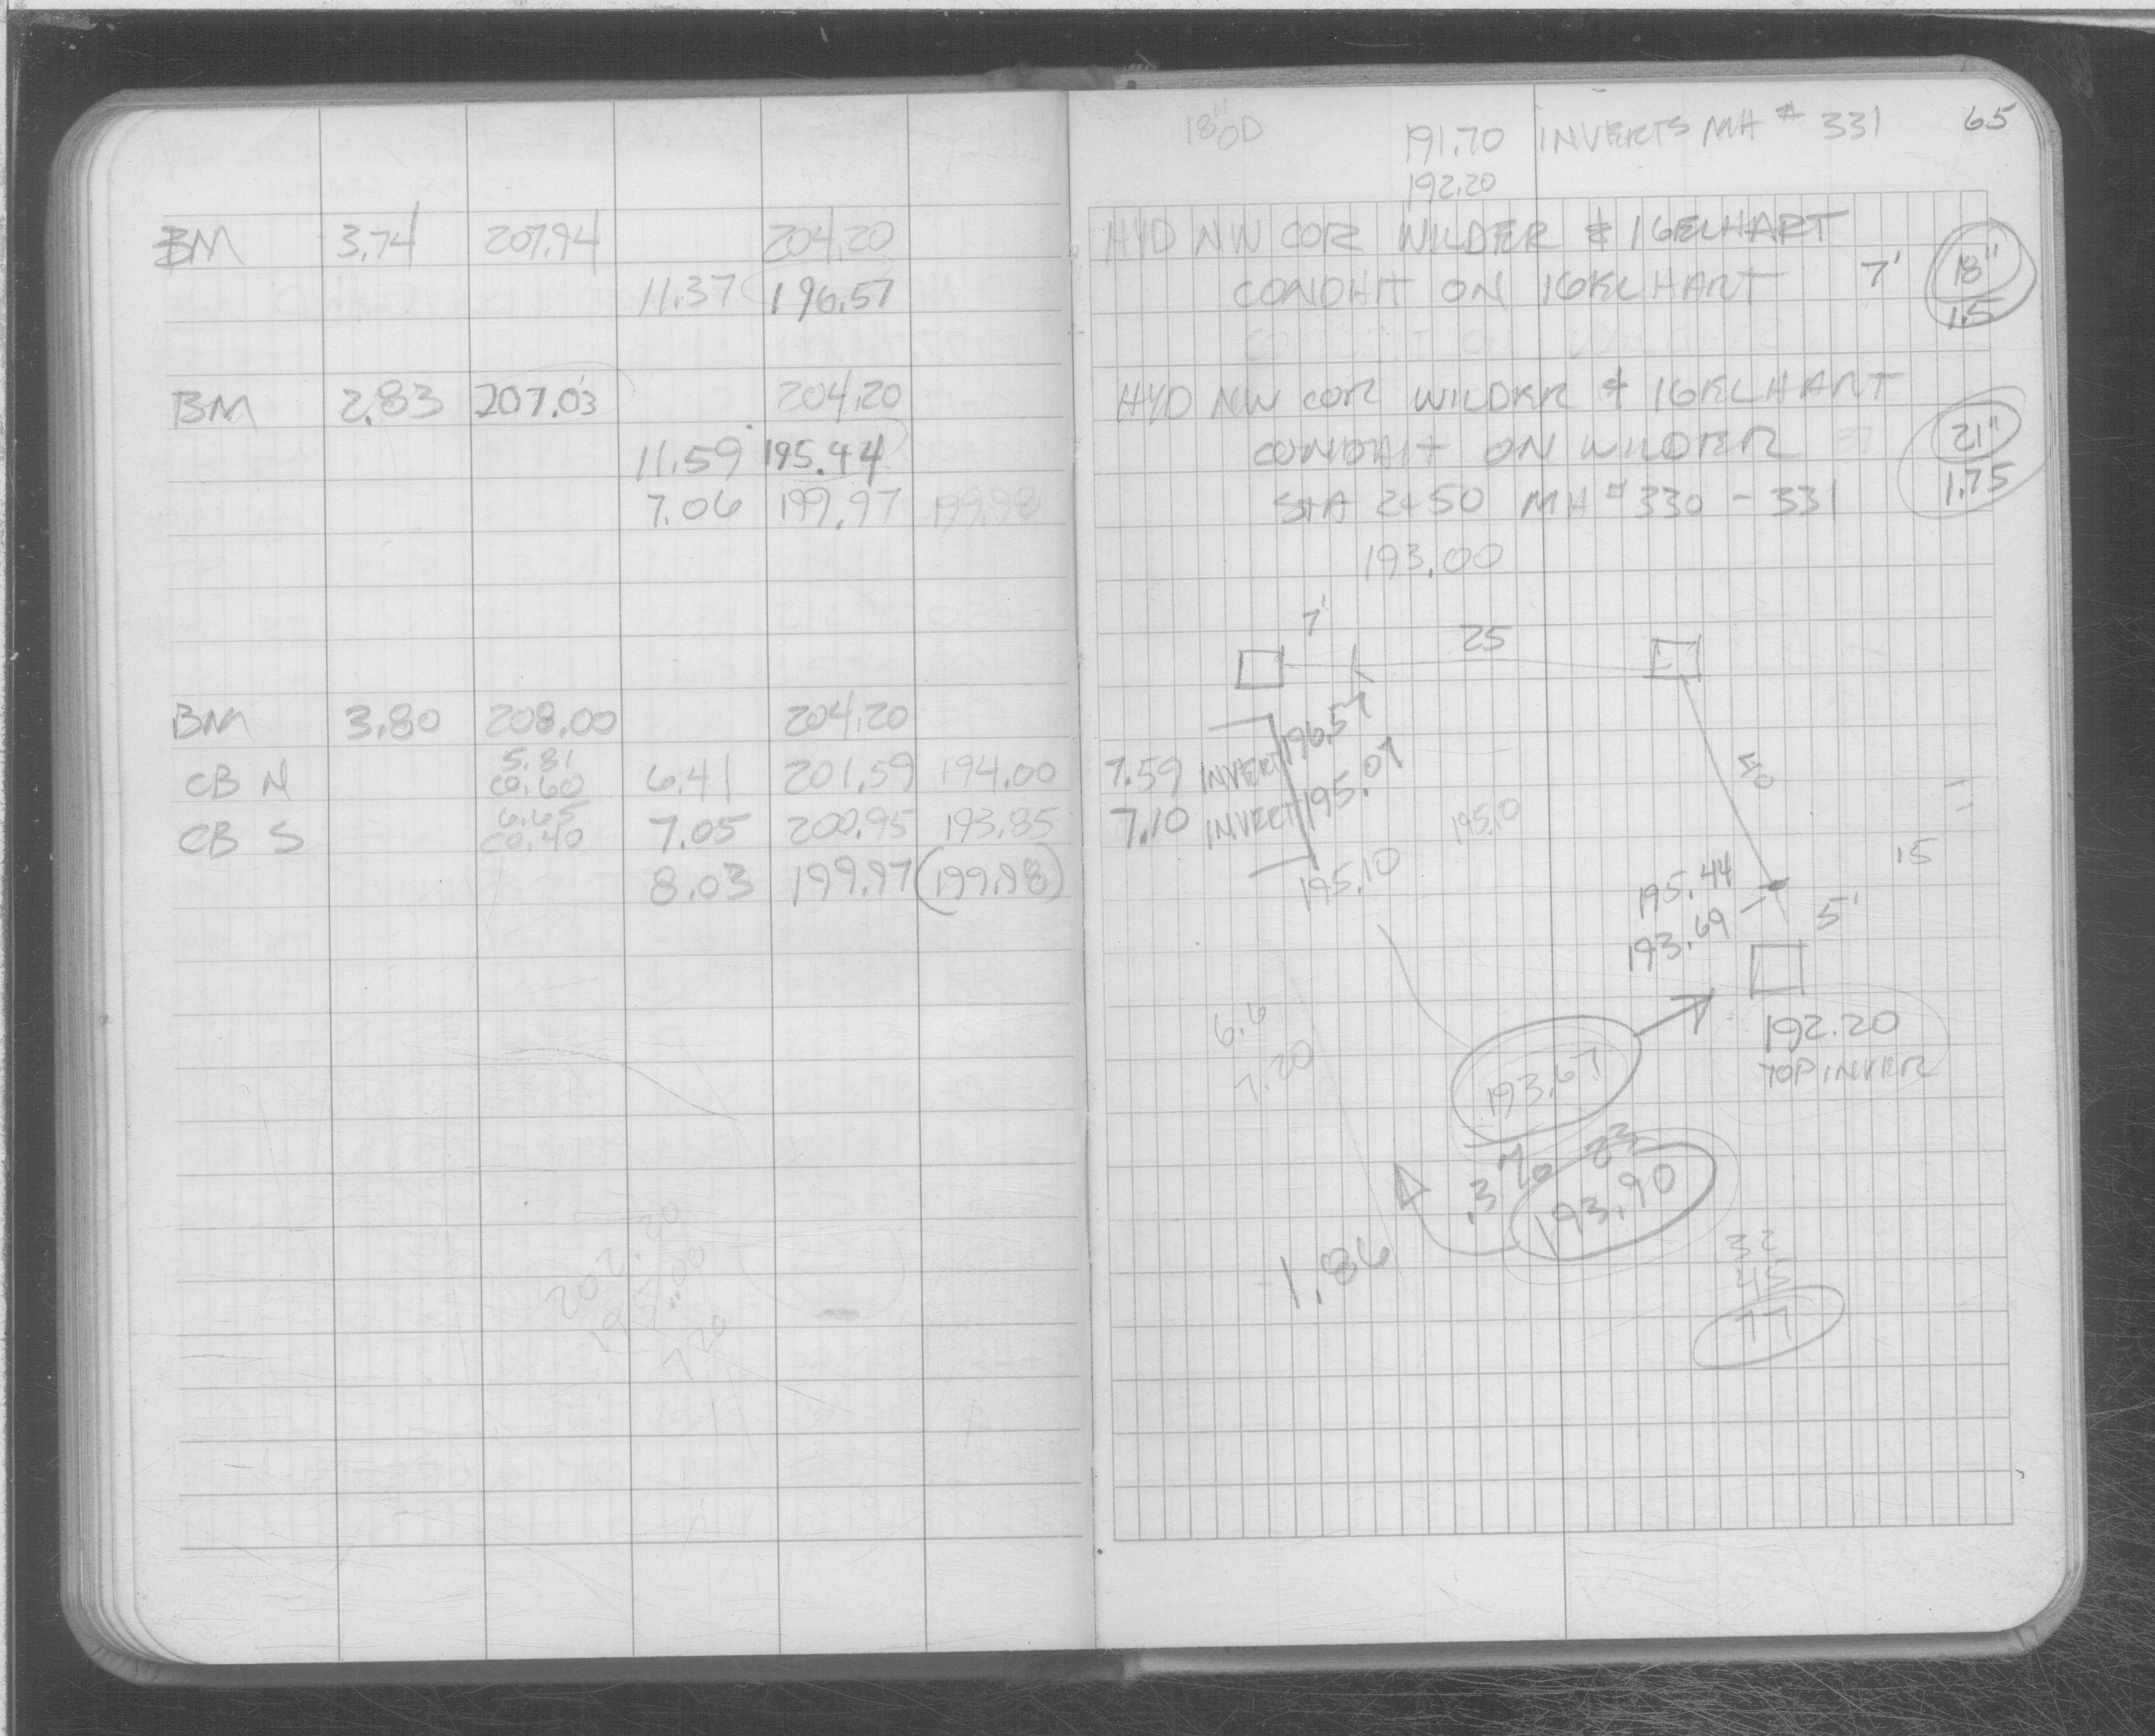 BM 3.74 207.94 204.20
11.37 196.57
BM 2.83 207.03 204.20
11.59 195.44
7.06 199.97 199.98
BM 3.80 208.00 204.20
5.81
CB N CO.60 6.41 201.59 194.00
6.65
CB S CO.40 7.05 200.95 193.85
8.03 199.97 (199.98)
202.20
195.00
7.20
18" OD 191.70 INVERTS MH # 331 65
192.20
HYD NW COR WILDER & IGELHART
CONDUIT ON IGELHART 7' 18"
1.5
HYD NW COR WILDER & IGELHART
CONDUIT ON WILDER 21"
STA 2+50 MH # 330 - 331 1.75
193.00
7' 25
196.57
7.59 INVERT 195.07
7.10 INVERT
40
195.10 195.10
15
195.44
193.69 5'
6.6
7.20
192.20
TOP INVER
193.67
.3% 23
193.90
1.86
32
45
77